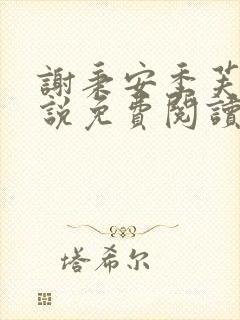 謝秉安季芙
說免費閱讀
塔希尔